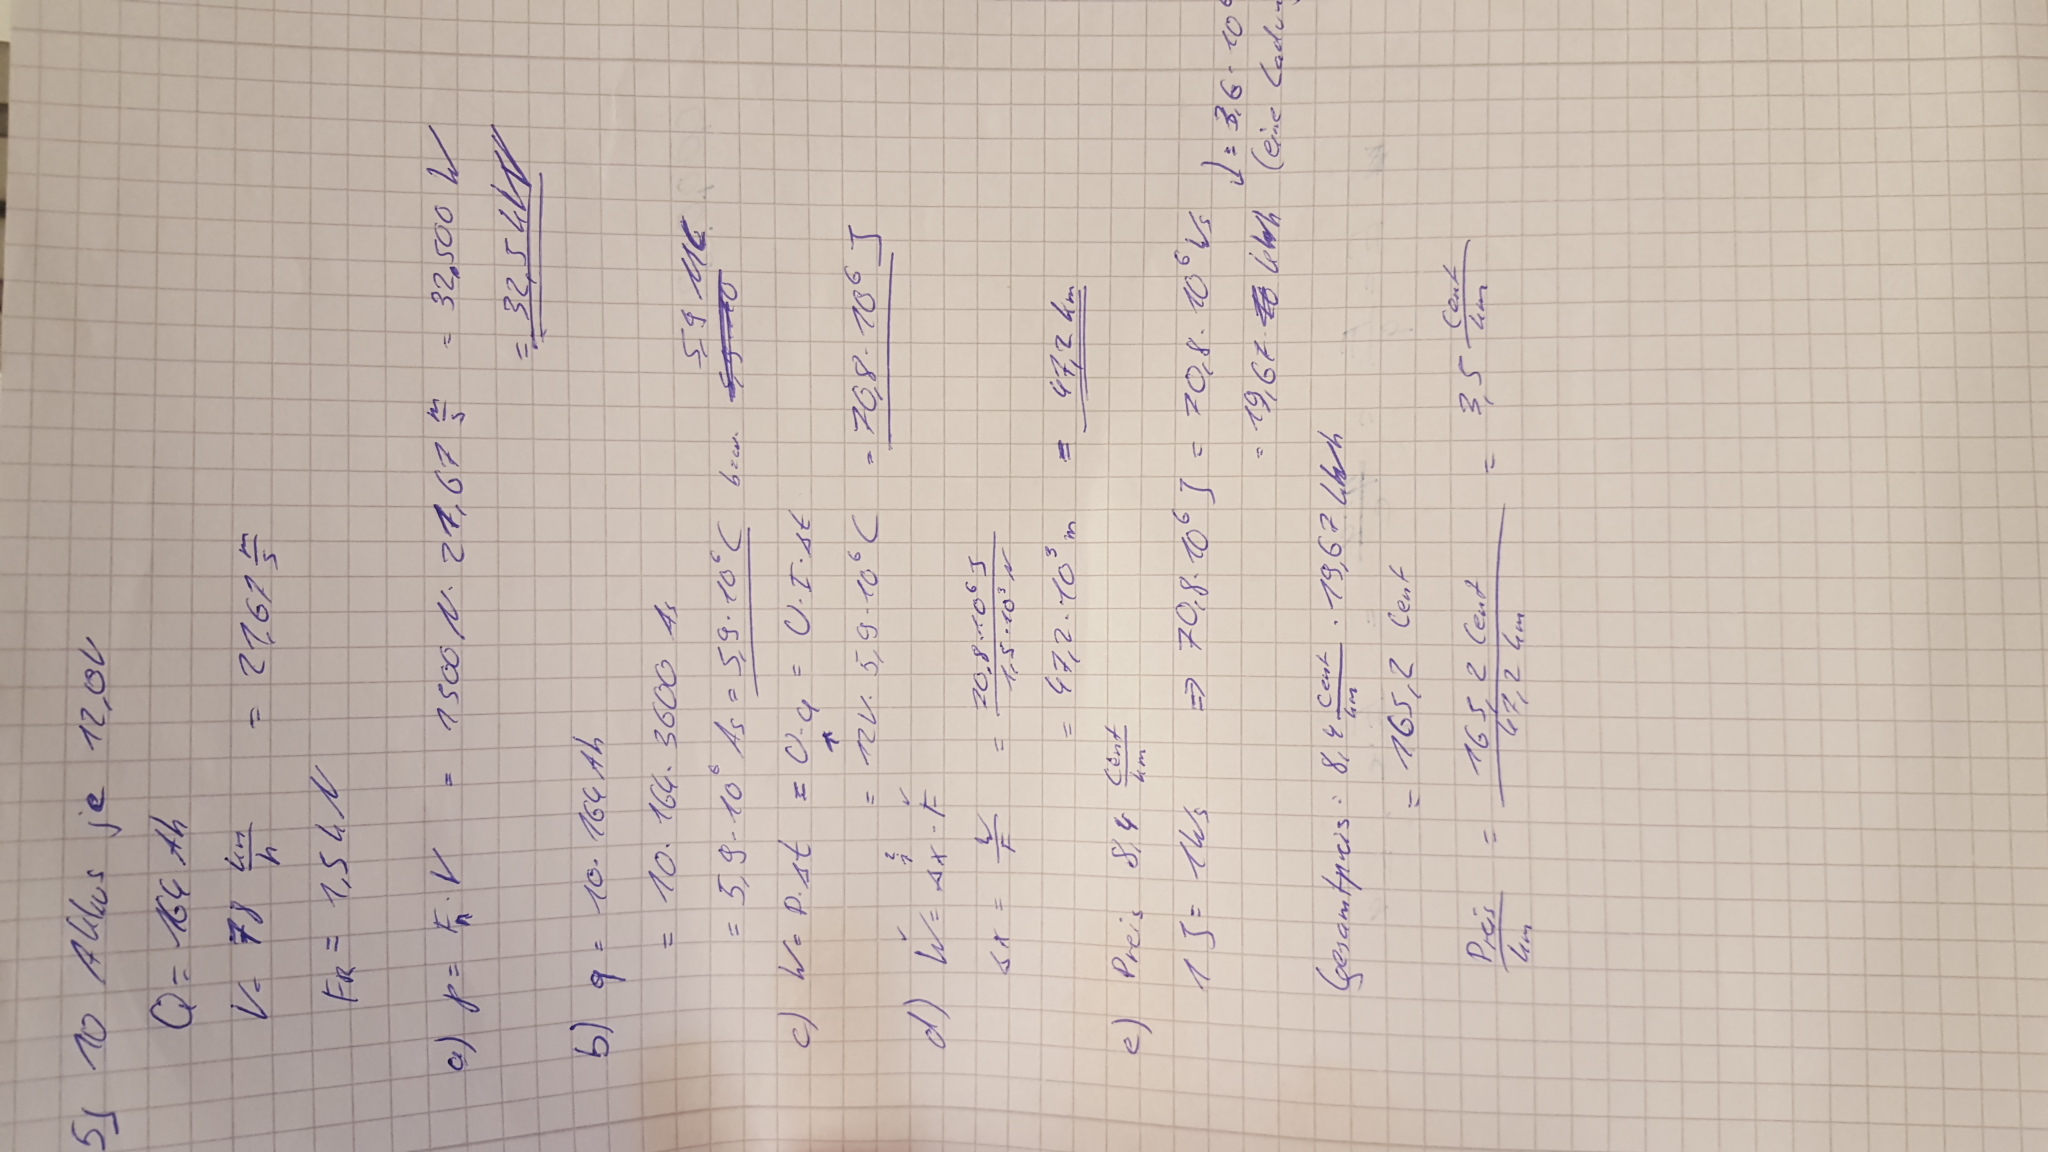 5) 10 Akkus je 12,0V
Q = 164 Ah
V = 78 km/h = 21,67 m/s
FR = 1,5 kN
a) p = FR · V = 1500 N · 21,67 m/s = 32.500 W
= 32,5 kW
b) q = 10 · 164 Ah
= 10 · 164 · 3600 As
= 5,9 · 10⁶ As = 5,9 · 10⁶ C bzw. 5,9 MC
c) W = P · Δt = U · q = U · I · Δt
= 12V · 5,9 · 10⁶ C = 70,8 · 10⁶ J
d) W = Δx · F
Δx = W/F = 70,8 · 10⁶ J / 1,5 · 10³ N
= 47,2 · 10³ m = 47,2 km
e) Preis 8,4 Cent/km
1 J = 1Ws ⇒ 70,8 · 10⁶ J = 70,8 · 10⁶ Ws
↓ : 3,6 · 10⁶
= 19,67 kWh (eine Ladung
Gesamtpreis: 8,4 Cent/km · 19,67 kWh
= 165,2 Cent
Preis/km = 165,2 Cent / 47,2 km = 3,5 Cent/km